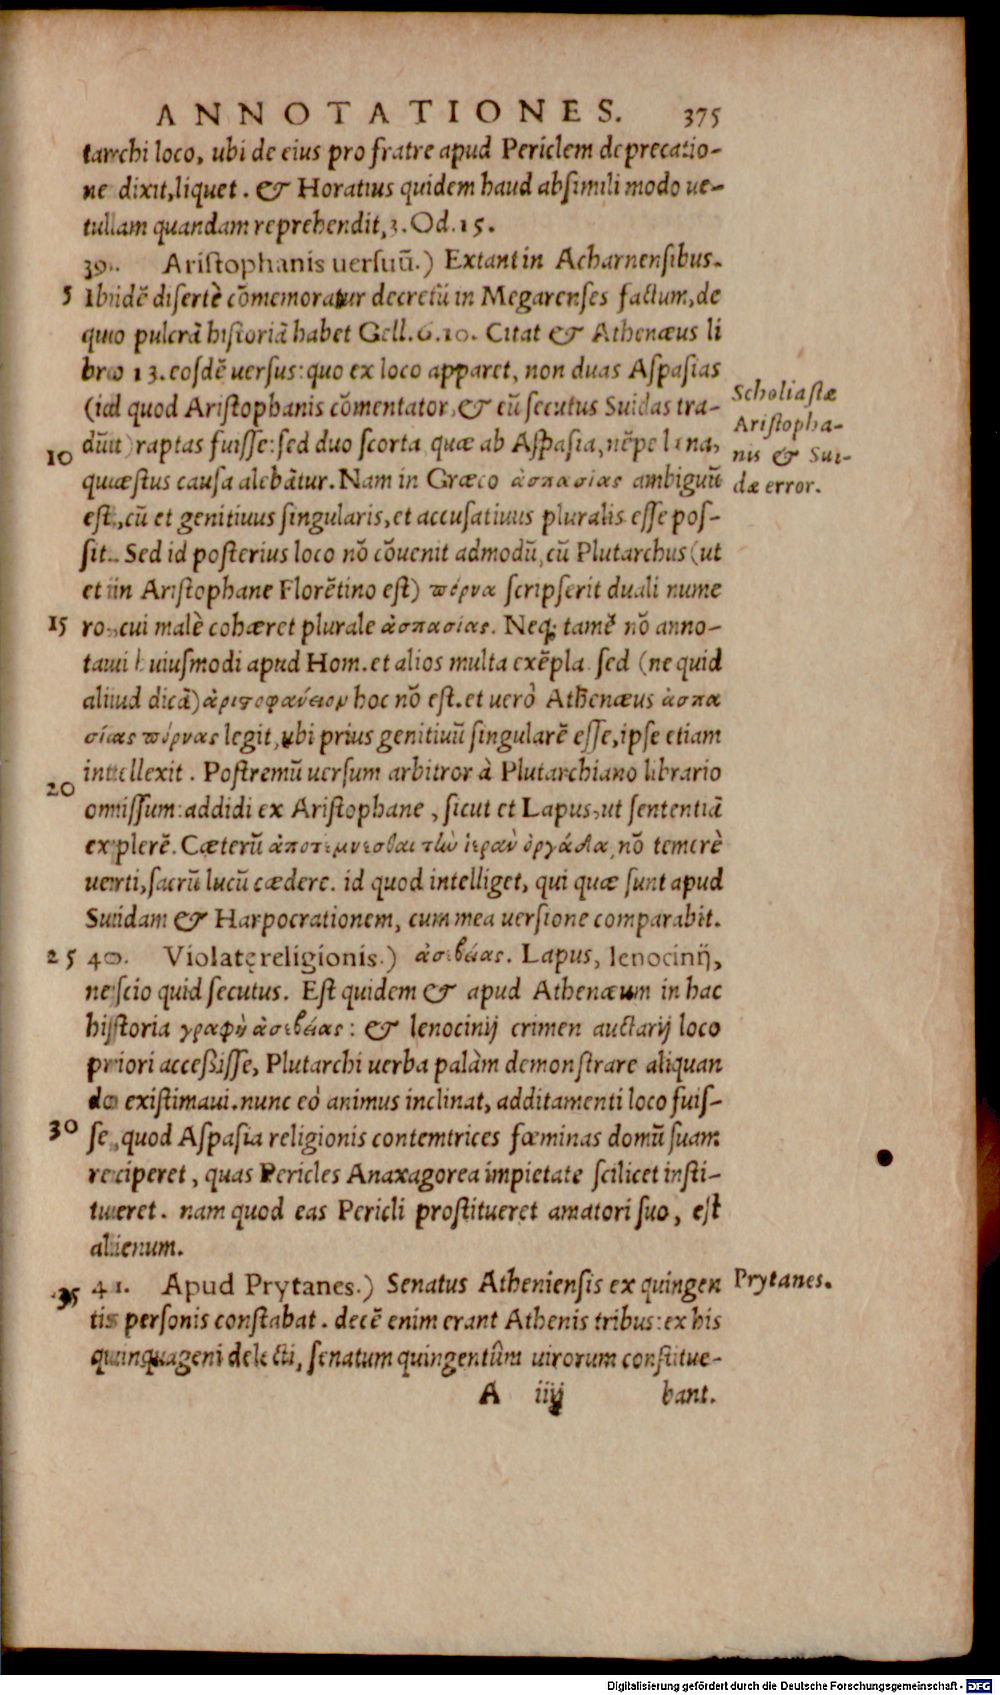 ANNOTATIONES. 375
tarchi loco, ubi de eius pro fratre apud Periclem deprecatio-
ne dixit, liquet. & Horatius quidem haud absimili modo ue-
tullam quandam reprehendit, 3. Od. 15.
39. Aristophanis uersuũ.) Extant in Acharnensibus.
5 Ibidẽ disertè cõmemoratur decretũ in Megarenses factum, de
quo pulcrã historiã habet Gell. 6. 10. Citat & Athenæus li
bro 13. eosdẽ uersus: quo ex loco apparet, non duas Aspasias
(id quod Aristophanis cõmentator, & eũ secutus Suidas tra-
dũt) raptas fuisse: sed duo scorta quæ ab Aspasia, nẽpe lena,
Scholiastæ
Aristopha-
nis & Sui-
dæ error.
10 quæstus causa alebãtur. Nam in Græco ἀσπασίας ambiguũ
est, cũ et genitiuus singularis, et accusatiuus pluralis esse pos-
sit. Sed id posterius loco nõ cõuenit admodũ, cũ Plutarchus (ut
et in Aristophane Florẽtino est) πόρνα scripserit duali nume
15 ro, cui malè cohæret plurale ἀσπασίας. Neq; tamẽ nõ anno-
taui huiusmodi apud Hom. et alios multa exẽpla sed (ne quid
aliud dicã) ἀριστοφανέιον hoc nõ est. et uerò Athenæus ἀσπα
σίας πόρνας legit, ubi prius genitiuũ singularẽ esse, ipse etiam
intellexit. Postremũ uersum arbitror à Plutarchiano librario
20 omissum: addidi ex Aristophane, sicut et Lapus, ut sententiã
explerẽ. Cæterũ ἀποτέμνεσθαι τὴν ἱερὰν ὀργάδα, nõ temerè
uerti, sacrũ lucũ cædere. id quod intelliget, qui quæ sunt apud
Suidam & Harpocrationem, cum mea uersione comparabit.
25 40. Violatę religionis.) ἀσεβείας. Lapus, lenocinij,
nescio quid secutus. Est quidem & apud Athenæum in hac
historia γραφὴ ἀσεβείας: & lenocinij crimen auctarij loco
priori accessisse, Plutarchi uerba palàm demonstrare aliquan
do existimaui. nunc eò animus inclinat, additamenti loco fuis-
30 se, quod Aspasia religionis contemtrices fœminas domũ suam
reciperet, quas Pericles Anaxagorea impietate scilicet insti-
tueret. nam quod eas Pericli prostitueret amatori suo, est
alienum.
41. Apud Prytanes.) Senatus Atheniensis ex quingen
Prytanes.
35 tis personis constabat. decẽ enim erant Athenis tribus: ex his
quinquageni delecti, senatum quingentûm uirorum constitue-
A iiij bant.
Digitalisierung gefördert durch die Deutsche Forschungsgemeinschaft - DFG